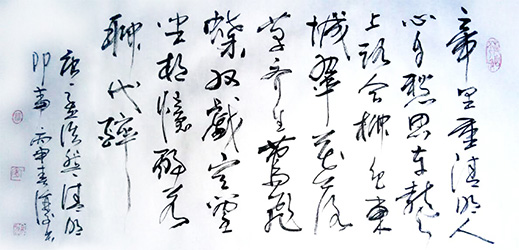 帝里重清明人
心自愁思车声
上路合柳色东
城翠花落
草齐生莺飞
蝶双戏空堂
坐相忆酌茗
聊代醉
唐孟浩然清明
即事丙申春